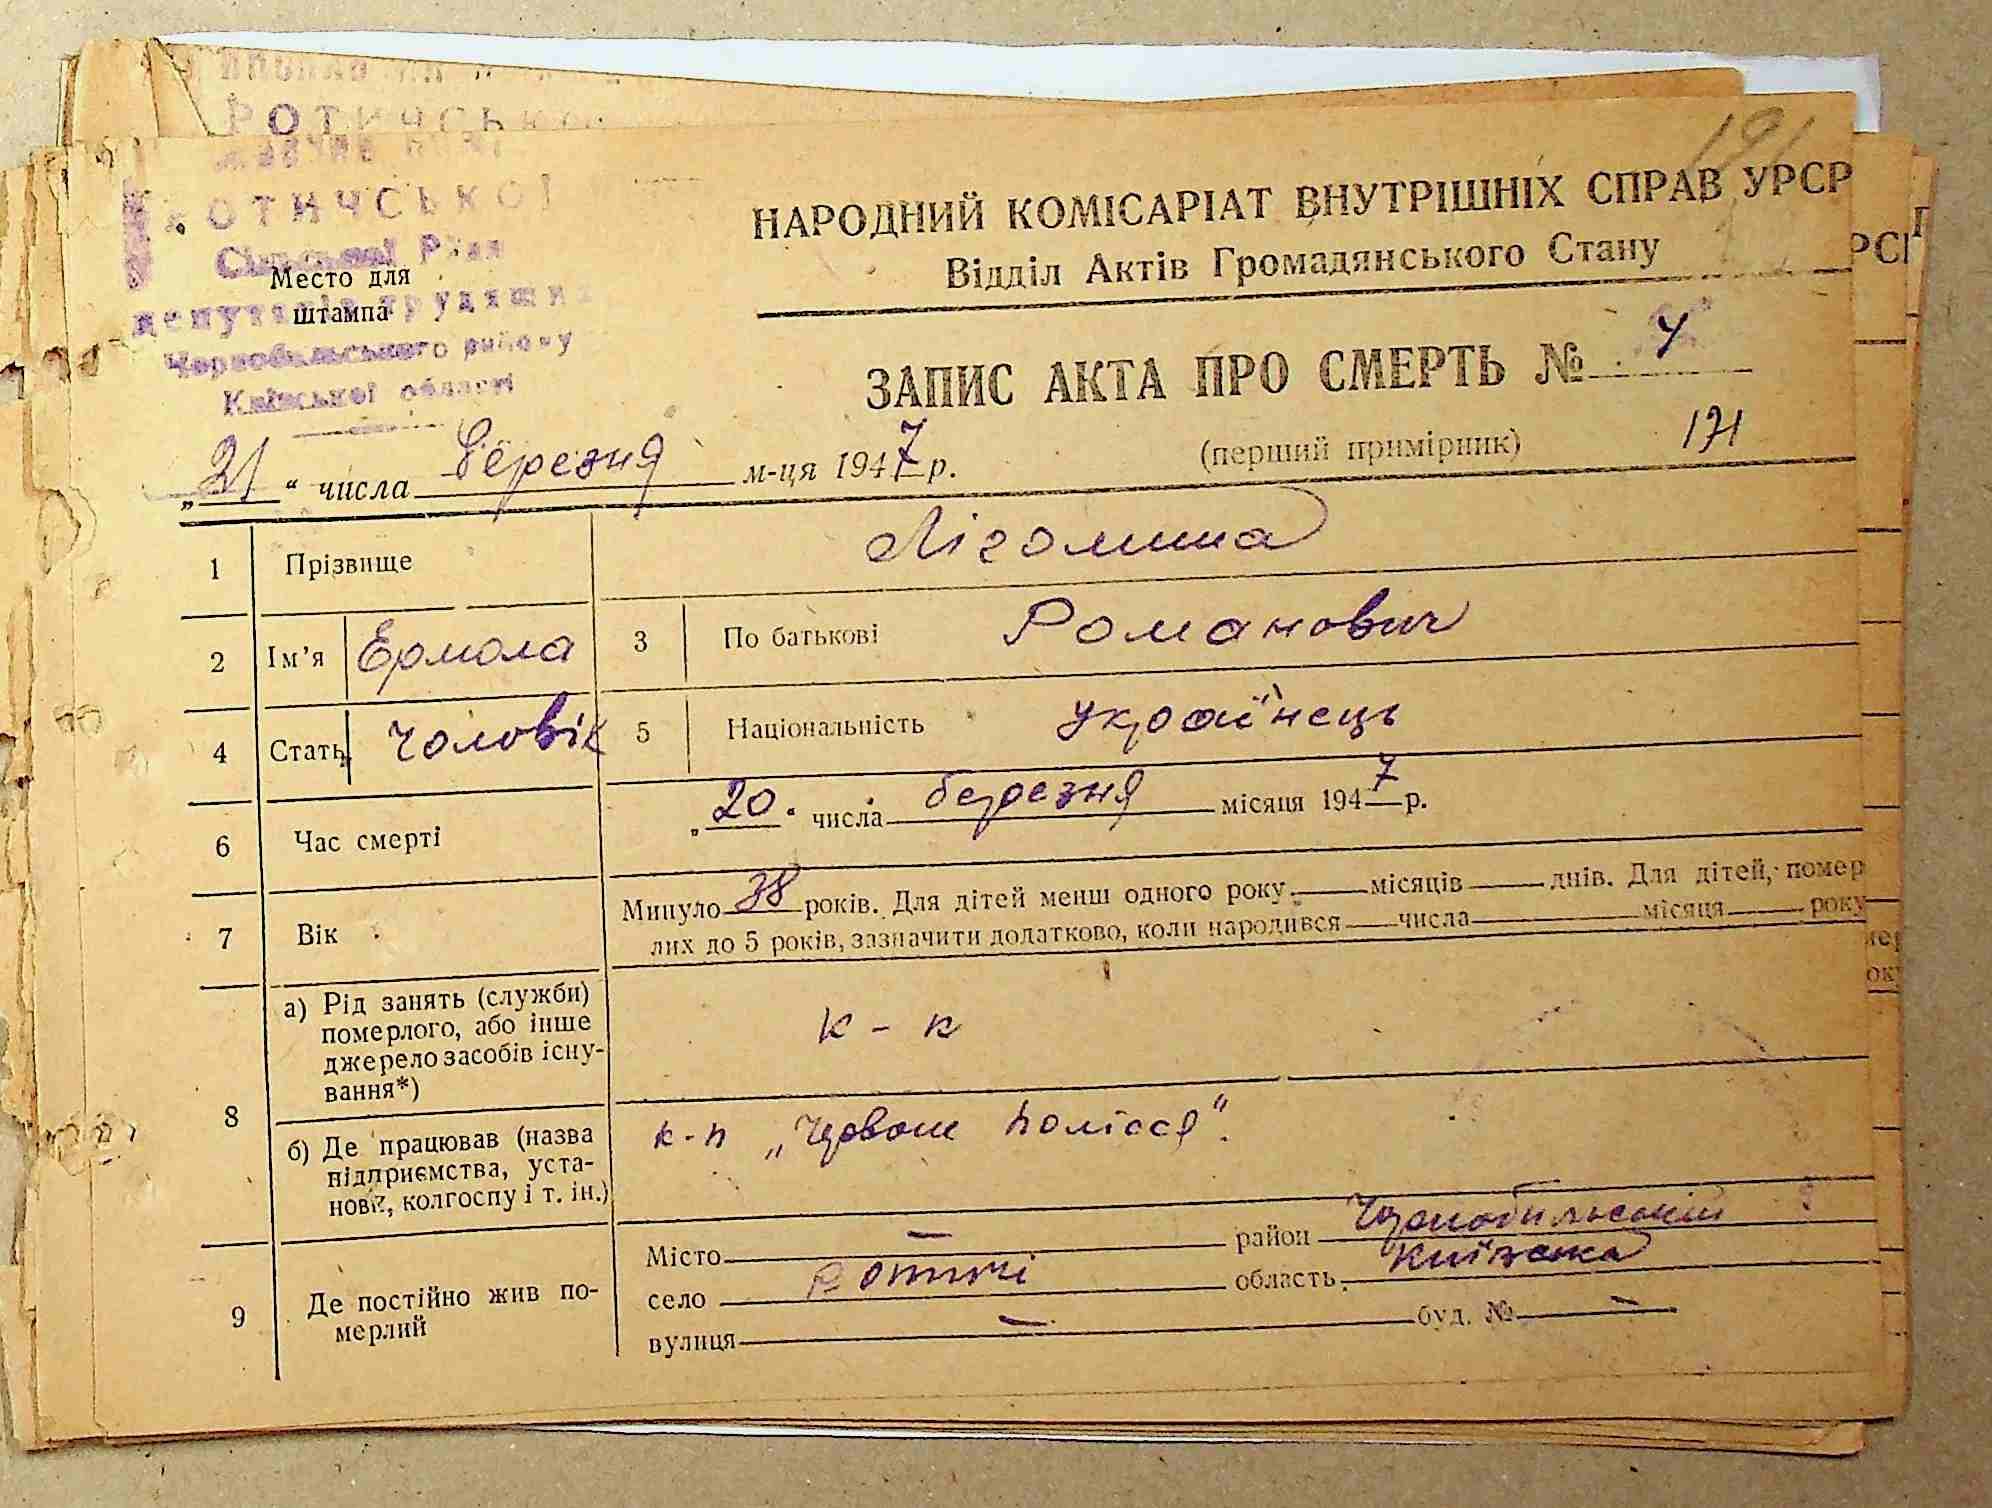 РОТИЧСЬКО
РОТИЧСЬКОЇ
Сільської Ради
Место для
депутатів трудящих
штампа
Чорнобильського району
Київської області
НАРОДНИЙ КОМІСАРІАТ ВНУТРІШНІХ СПРАВ УРСР
Відділ Актів Громадянського Стану
ЗАПИС АКТА ПРО СМЕРТЬ № 4
„21“ числа березня м-ця 1947 р.
(перший примірник) 171
1 Прізвище Лігомина
2 Ім'я Ермола 3 По батькові Романович
4 Стать чоловік 5 Національність українець
6 Час смерті „20“ числа березня місяця 1947 р.
7 Вік Минуло 38 років. Для дітей менш одного року — місяців — днів. Для дітей, помер
лих до 5 років, зазначити додатково, коли народився — числа — місяця — року
8 а) Рід занять (служби)
померлого, або інше
джерело засобів існу-
вання*)
к - к
б) Де працював (назва
підприємства, уста-
нови, колгоспу і т. ін.)
к-п „Червоне Полісся".
9 Де постійно жив по-
мерлий
Місто — район Чорнобильський
село Ротичі область Київська
вулиця — буд. № —